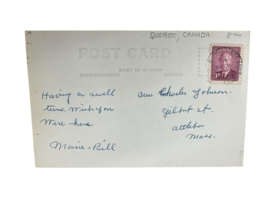 QUEBEC, CANADA
POST CARD
MADE IN CANADA
CORRESPONDENCE ADDRESS
Having a swell
time Wish you
Were here
Marie-Bill
Charles Johnson
Gilbert st.
Attleboro
Mass.